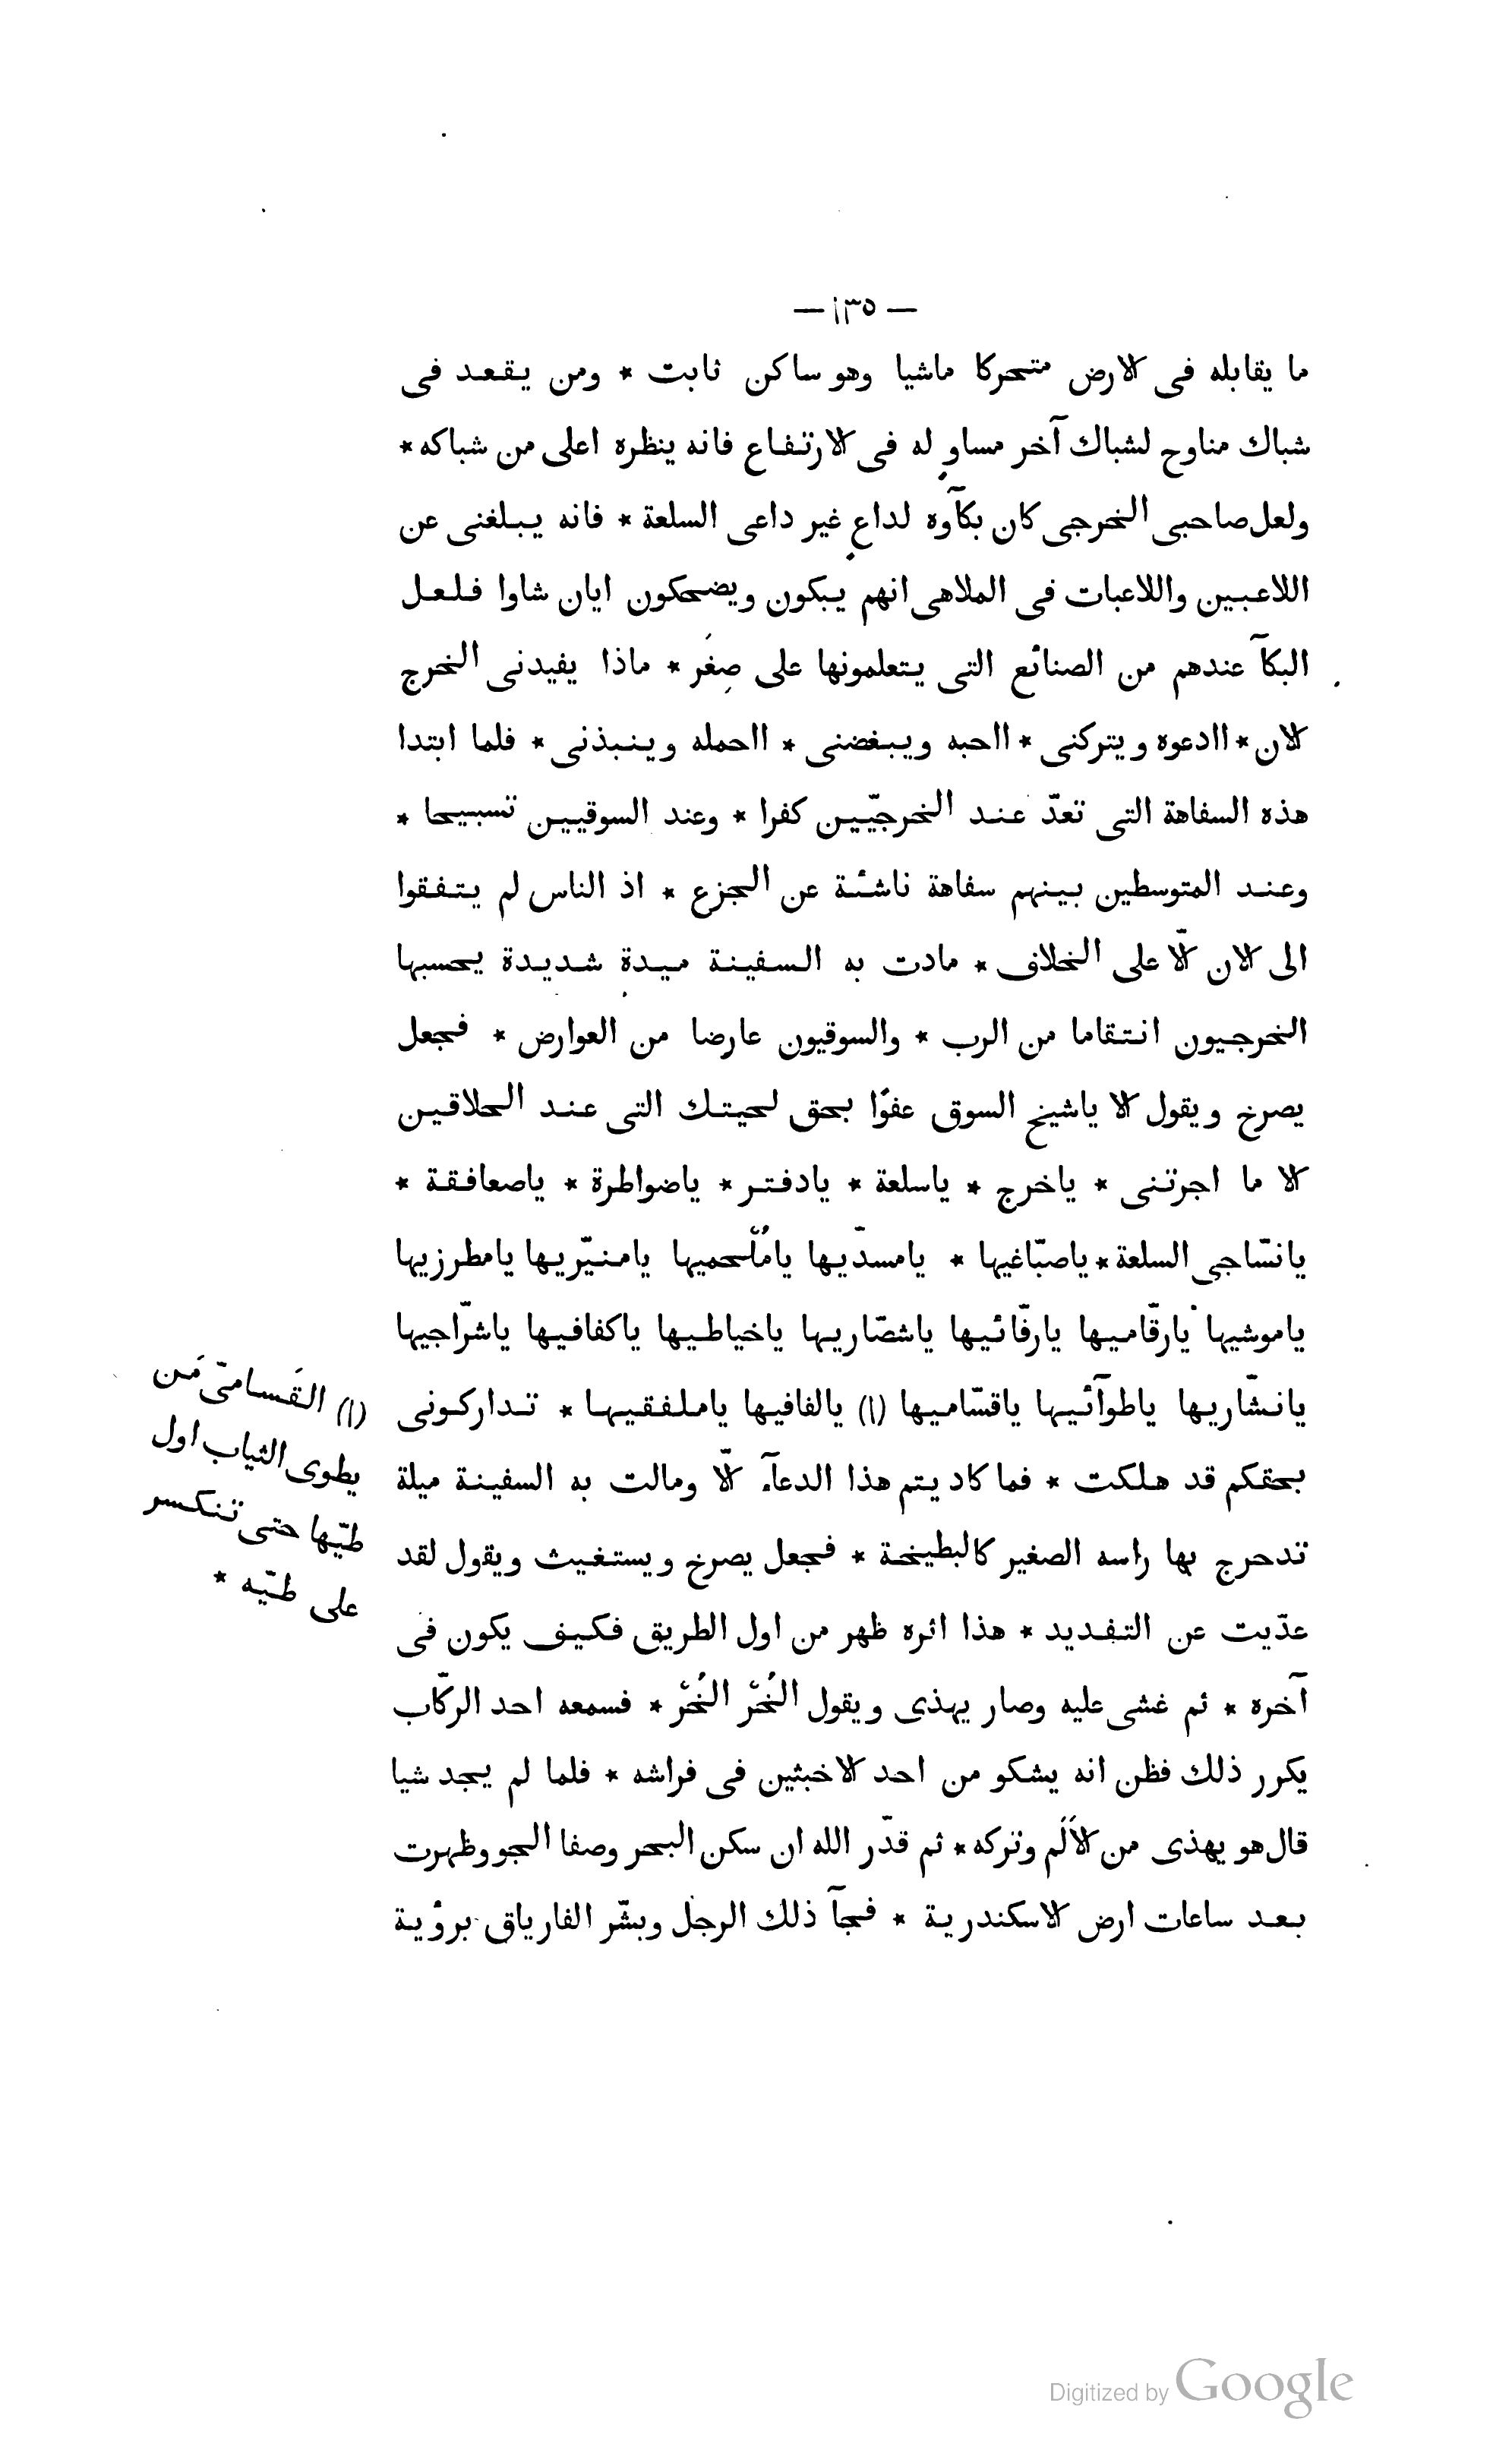 — ١٣٥ —
ما يقابله فى الارض متحركا ماشيا وهو ساكن ثابت * ومن يقعد فى
شباك مناوح لشباك آخر مساوٍ له فى الارتفاع فانه ينظره اعلى من شباكه *
ولعل صاحبى الخرجى كان بكآوه لداعٍ غير داعى السلعة * فانه يبلغنى عن
اللاعبين واللاعبات فى الملاهى انهم يبكون ويضحكون ايان شاوا فلعل
البكآ عندهم من الصنائع التى يتعلمونها على صِغَر * ماذا يفيدنى الخرج
الان * اادعوه ويتركنى * ااحبه ويبغضنى * ااحمله وينبذنى * فلما ابتدا
هذه السفاهة التى تعدّ عند الخرجيّين كفرا * وعند السوقيين تسبيحا *
وعند المتوسطين بينهم سفاهة ناشئة عن الجزع * اذ الناس لم يتفقوا
الى الان الّا على الخلاف * مادت به السفينة ميدة شديدة يحسبها
الخرجيون انتقاما من الرب * والسوقيون عارضا من العوارض * فجعل
يصرخ ويقول الا ياشيخ السوق عفوًا بحق لحيتك التى عند الحلاقين
الا ما اجرتنى * ياخرج * ياسلعة * يادفتر * ياضواطرة * ياصعافقة *
يانسّاجى السلعة * ياصبّاغيها * يامسدّيها يامُلْحميها يامنيّريها يامطرزيها
ياموشيها يارقّاميها يارفّائيها ياشصّاريها ياخياطيها ياكفافيها ياشرّاجيها
يانشّاريها ياطوآئيها ياقسّاميها (١) يالفافيها ياملفقيها * تداركونى
بحقكم قد هلكت * فما كاد يتم هذا الدعآء الّا ومالت به السفينة ميلة
تدحرج بها راسه الصغير كالبطيخة * فجعل يصرخ ويستغيث ويقول لقد
عدّيت عن التفديد * هذا اثره ظهر من اول الطريق فكيف يكون فى
آخره * ثم غشى عليه وصار يهذى ويقول الخُرْ الخُرْ * فسمعه احد الركّاب
يكرر ذلك فظن انه يشكو من احد الاخبثين فى فراشه * فلما لم يجد شيا
قال هو يهذى من الاَلَم وتركه * ثم قدّر الله ان سكن البحر وصفا الجو وظهرت
بعد ساعات ارض الاسكندرية * فجآ ذلك الرجل وبشّر الفارياق برؤية
(١) القَسامىّ مَن
يطوى الثياب اول
طيّها حتى تنكسر
على طيّه *
Digitized by Google